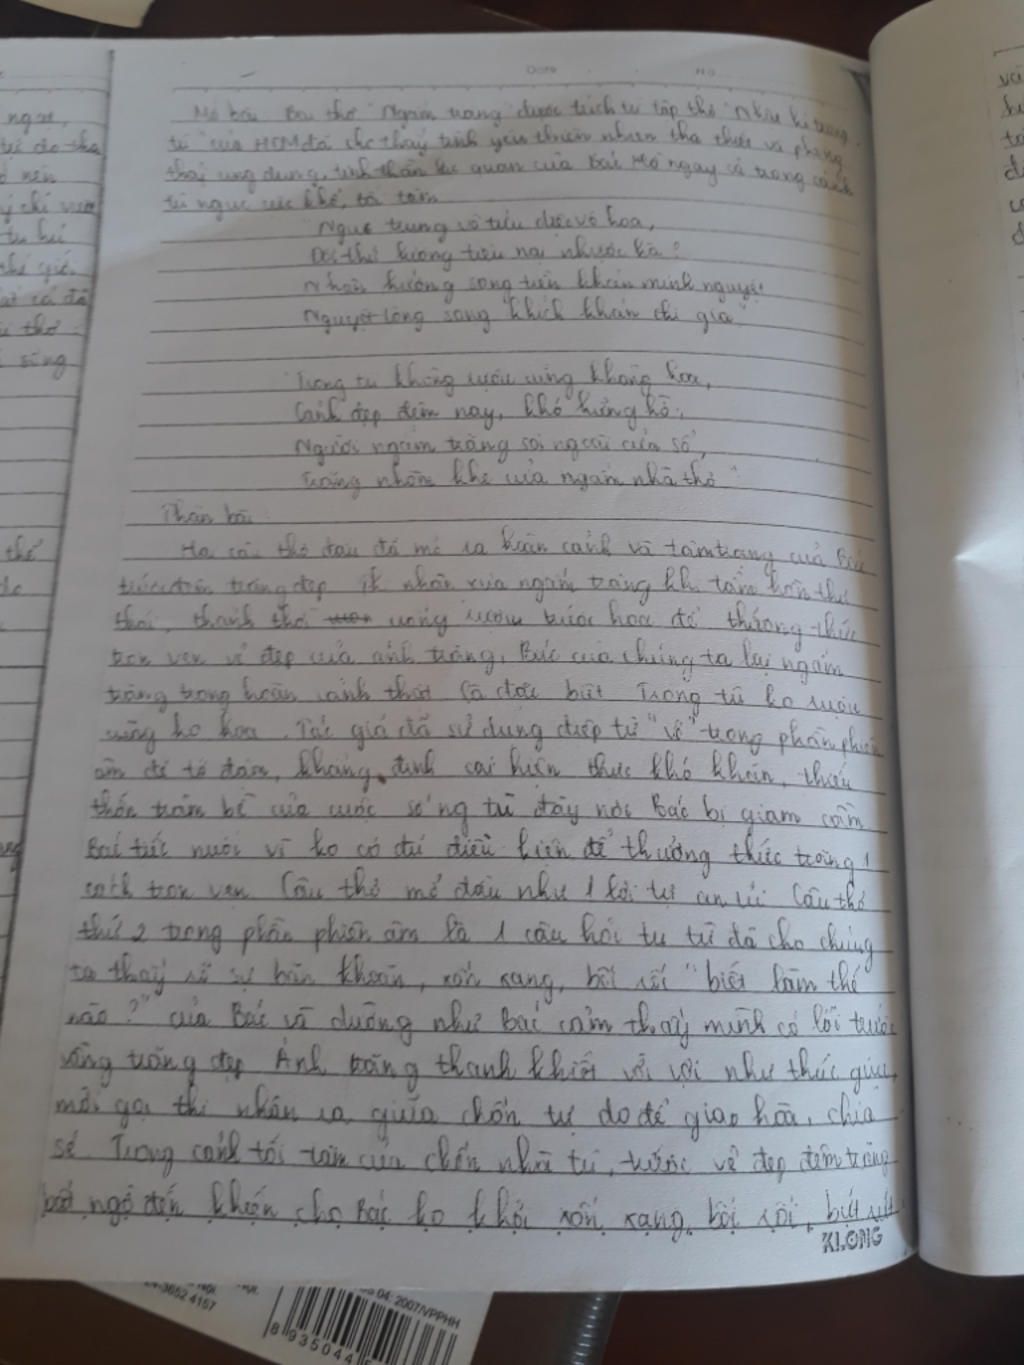 Date No
Mở bài Bài thơ "Ngắm trăng" được trích từ tập thơ "Nhật kí trong
tù" của HCM đã cho thấy tình yêu thiên nhiên tha thiết và phong
thái ung dung, tinh thần lạc quan của Bác Hồ ngay cả trong cảnh
tù ngục cực khổ, tối tăm
"Ngục trung vô tửu diệc vô hoa,
Đối thử lương tiêu nại nhược hà?
Nhân hướng song tiền khán minh nguyệt
Nguyệt tòng song khích khán thi gia"
"Trong tù không rượu cũng không hoa,
Cảnh đẹp đêm nay, khó hững hờ,
Người ngắm trăng soi ngoài cửa sổ,
Trăng nhòm khe cửa ngắm nhà thơ"
Thân bài
Hai câu thơ đầu đã mở ra hoàn cảnh và tâm trạng của Bác
trước đêm trăng đẹp. nhân xưa ngắm trăng khi tâm hồn thư
thái, thảnh thơi uống rượu trước hoa để thưởng thức
trọn vẹn vẻ đẹp của ánh trăng, Bác của chúng ta lại ngắm
trăng trong hoàn cảnh thật là đặc biệt Trong tù ko rượu
cũng ko hoa. Tác giả đã sử dụng điệp từ "vô" trong phần phiên
âm để tô đậm, khẳng định cái hiện thực khó khăn, thiếu
thốn trăm bề của cuộc sống tù đày nơi Bác bị giam cầm
Bác tiếc nuối vì ko có đủ điều kiện để thưởng thức trăng 1
cách trọn vẹn. Câu thơ mở đầu như 1 lời tự an ủi Câu thơ
thứ 2 trong phần phiên âm là 1 câu hỏi tu từ đã cho chúng
ta thấy rõ sự băn khoăn, xốn xang, bối rối "biết làm thế
nào?" của Bác và dường như Bác cảm thấy mình có lỗi trước
vầng trăng đẹp Ánh trăng thanh khiết vời vợi như thúc giục,
mời gọi thi nhân ra giữa chốn tự do để giao hòa, chia
sẻ. Trong cảnh tối tăm của chốn nhà tù, trước vẻ đẹp đêm trăng
bất ngờ đến khiến cho Bác ko khỏi xốn xang, bối rối, bứt rứt
KLONG
3652 4157
04:2007/VPPHH
8 935044